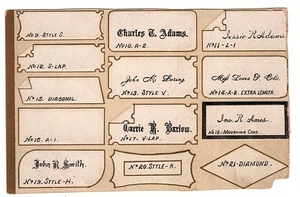 No 9. STYLE S.
Charles T. Adams.
No 10. A-2.
Jessie R. Adams.
No 11-L-1
No 12. S-LAP.
John M.
No 13. STYLE V.
No 14. A-B. EXTRA LENGTH.
No 15. DIAGONAL.
No 16. A-1.
Carrie H. Barlow.
No 17. V-LAP.
Jno. R. Ames.
No 18. MOURNING CARD.
John R. Smith.
No 19. STYLE-H.
No 20. STYLE-R.
No 21-DIAMOND.